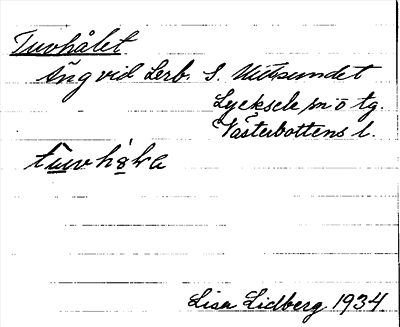 Tuvhålet
Äng vid Lerb. S. Umsundet
Lycksele m ö tg.
Västerbottens l.
tuvhəla
Lisa Lidberg 1934